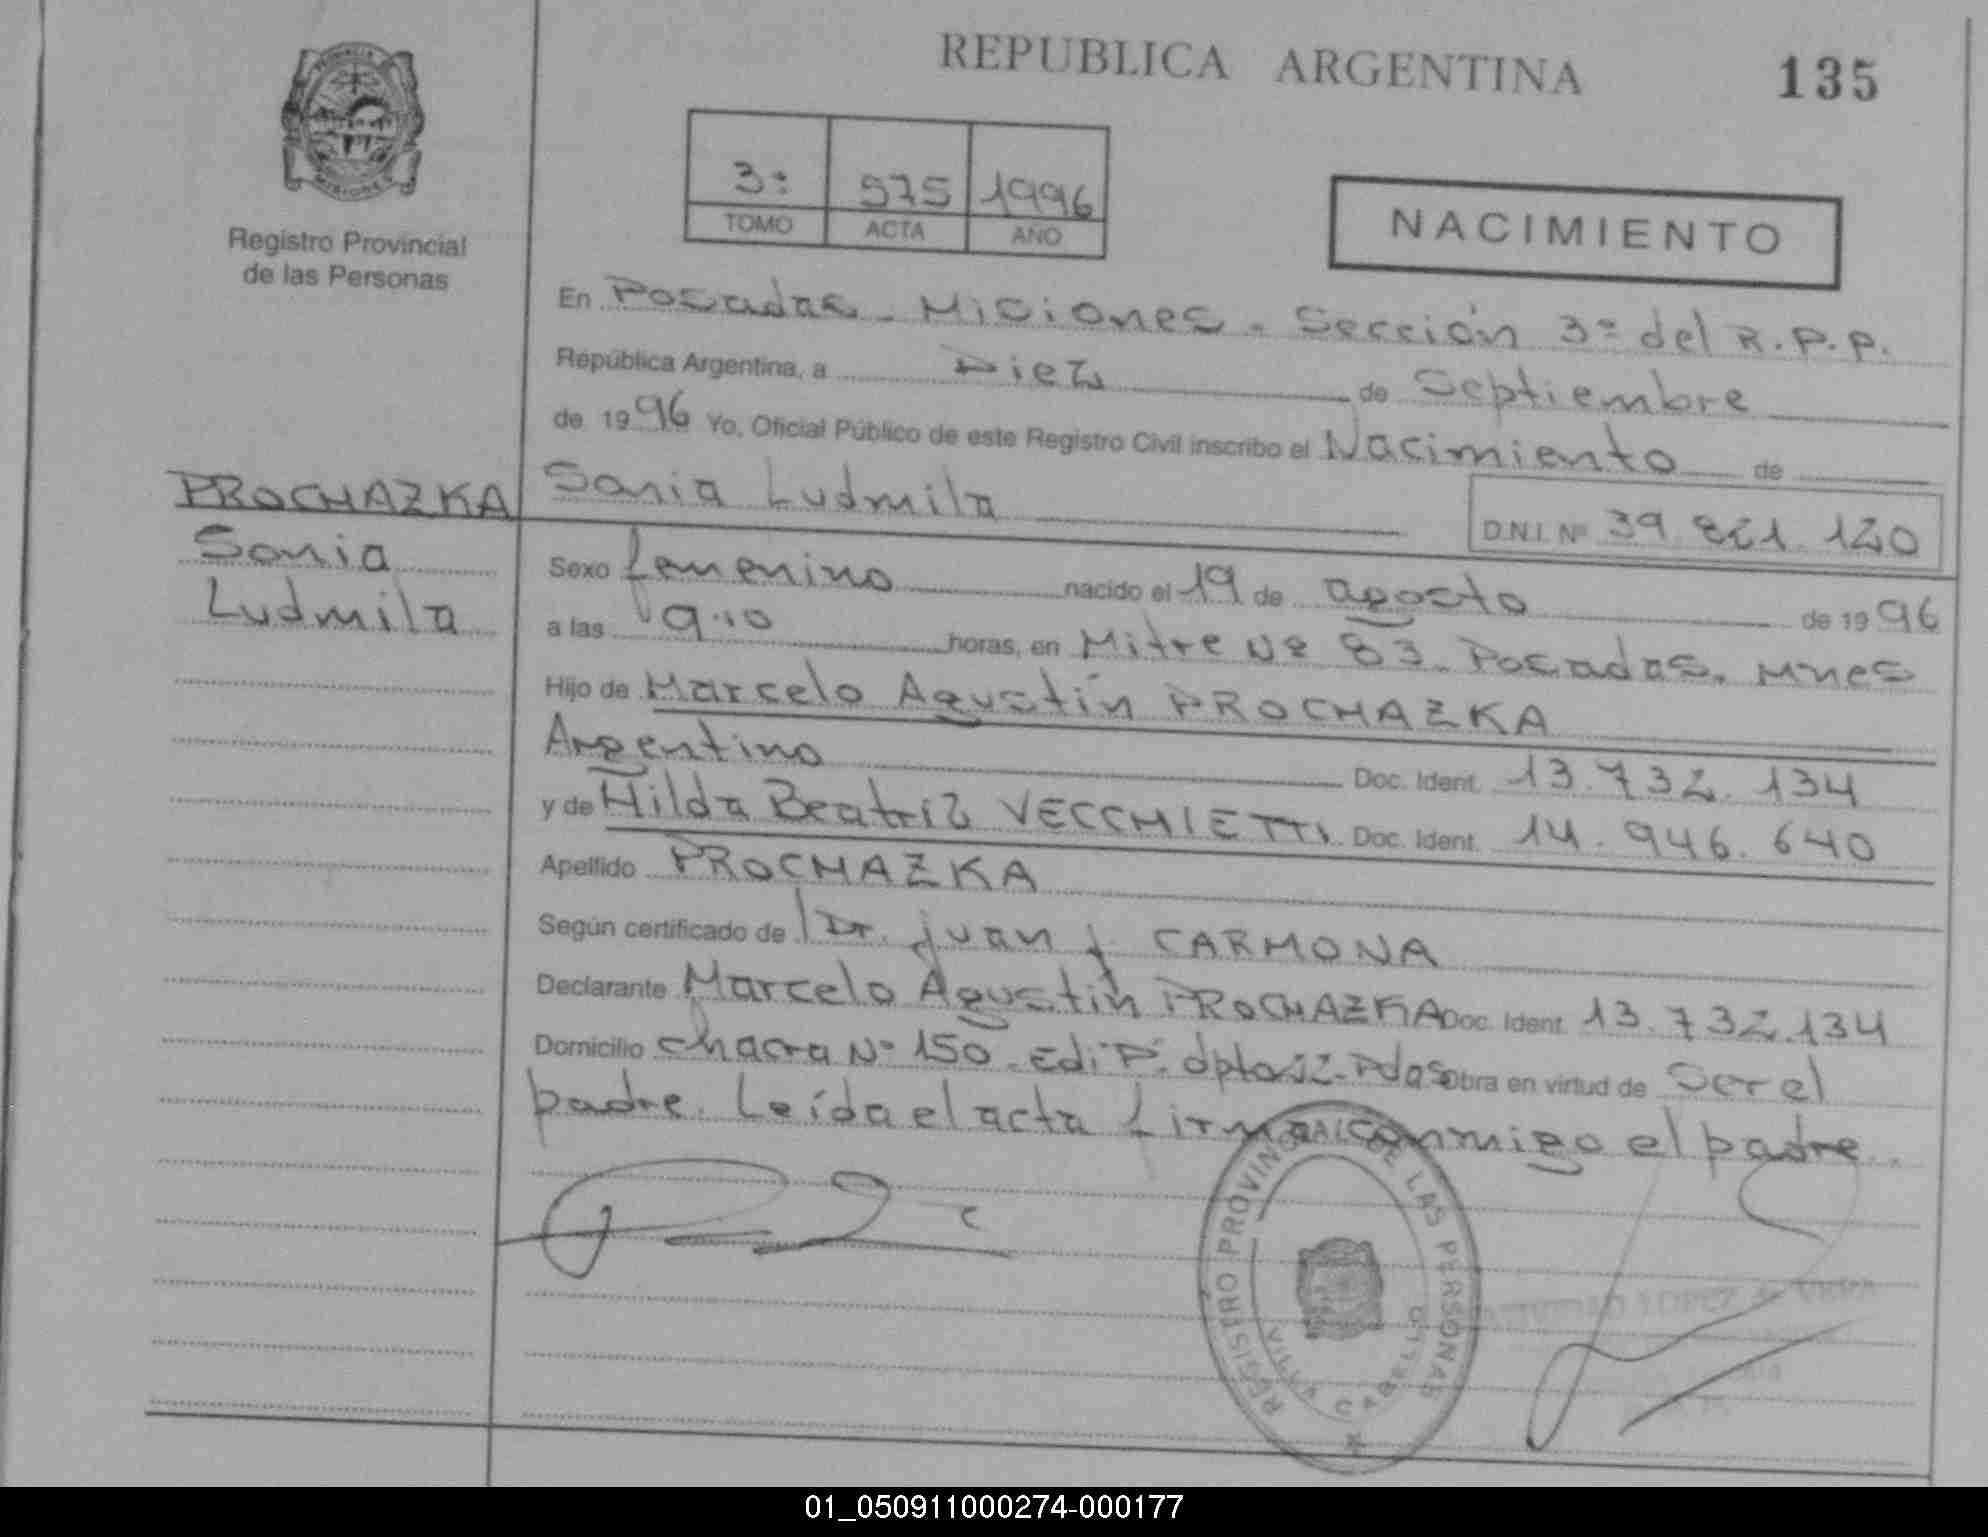 REPUBLICA ARGENTINA
135
MISIONES
Registro Provincial
de las Personas
3º 575 1996
TOMO ACTA AÑO
NACIMIENTO
En Posadas - Misiones - Sección 3º del R.P.P.
República Argentina, a Diez de Septiembre
de 1996 Yo, Oficial Público de este Registro Civil inscribo el Nacimiento de
PROCHAZKA Sonia Ludmila
D.N.I. Nº 39.821.120
Sonia
Ludmila
Sexo femenino nacido el 19 de agosto de 1996
a las 9.10 horas, en Mitre Nº 83. Posadas. Mnes
Hijo de Marcelo Agustín PROCHAZKA
Argentino Doc. Ident. 13.732.134
y de Hilda Beatriz VECCHIETTI Doc. Ident. 14.946.640
Apellido PROCHAZKA
Según certificado de Dr. Juan J. CARMONA
Declarante Marcelo Agustín PROCHAZKA Doc. Ident. 13.732.134
Domicilio Chacra Nº 150. Edi "P". dpto Pdas Obra en virtud de Ser el
padre. Leída el acta firma conmigo el padre.
REGISTRO PROVINCIAL DE LAS PERSONAS
VILLA CABELLO
LOPEZ de
01_050911000274-000177